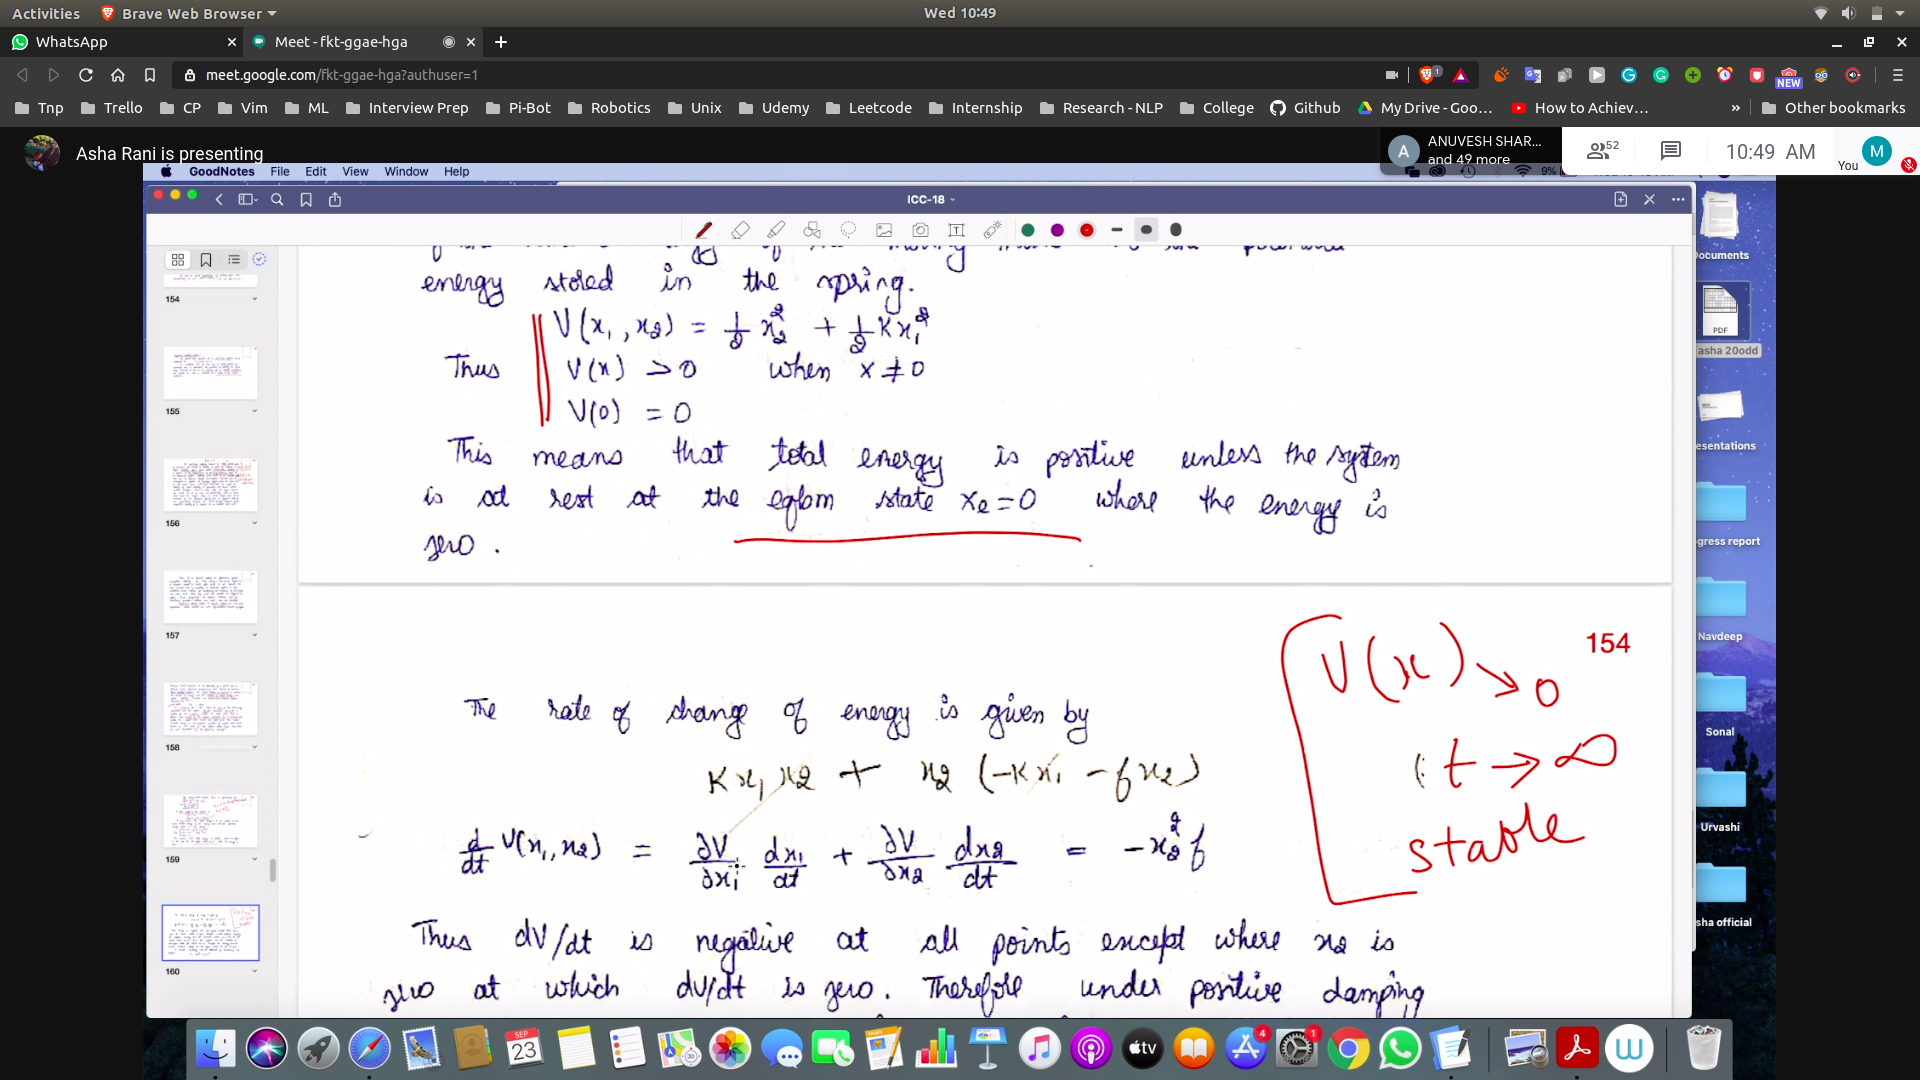 Activities Brave Web Browser Wed 10:49
WhatsApp Meet - fkt-ggae-hga
meet.google.com/fkt-ggae-hga?authuser=1 1 NEW
Tnp Trello CP Vim ML Interview Prep Pi-Bot Robotics Unix Udemy Leetcode Internship Research - NLP College Github My Drive - Goo... How to Achiev... » Other bookmarks
Asha Rani is presenting
A ANUVESH SHAR... and 49 more
52 10:49 AM You M
GoodNotes File Edit View Window Help 9%
ICC-18
energy stored in the spring.
V(x₁, x₂) = 1/2 x₂² + 1/2 Kx₁²
Thus V(x) > 0 when x ≠ 0
V(0) = 0
This means that total energy is positive unless the system
is at rest at the eqbm state xe = 0 where the energy is
zero.
154
V(x) → 0
t → ∞
stable
The rate of change of energy is given by
Kx₁x₂ + x₂ (-Kx₁ - fx₂)
d/dt V(x₁, x₂) = ∂V/∂x₁ dx₁/dt + ∂V/∂x₂ dx₂/dt = -x₂² f
Thus dV/dt is negative at all points except where x₂ is
zero at which dV/dt is zero. Therefore under positive damping
154
155
156
157
158
159
160
ocuments
PDF
asha 20odd
esentations
gress report
Navdeep
Sonal
Urvashi
sha official
SEP 23
tv
4
1